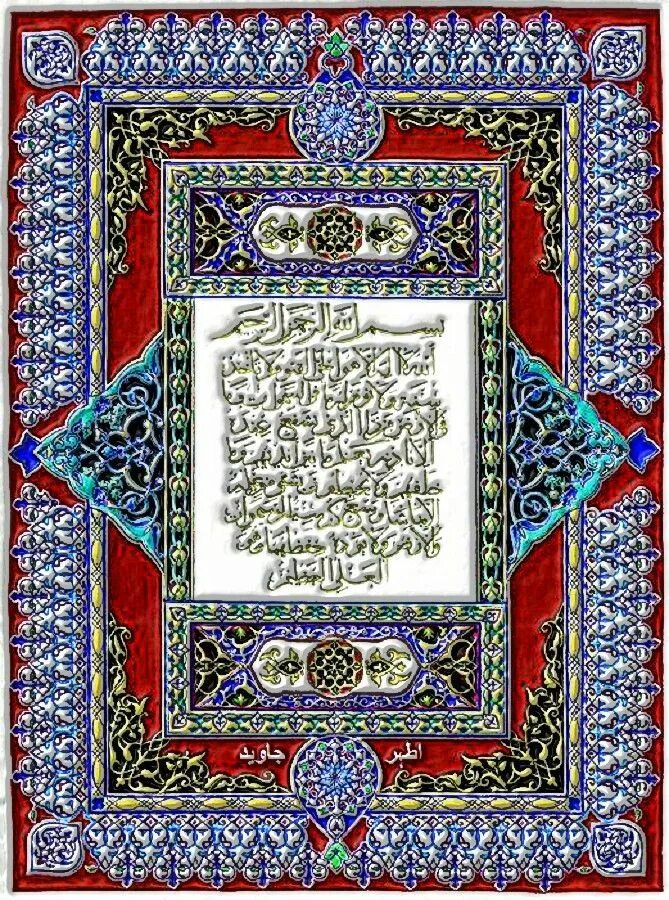 بسم الله الرحمن الرحيم
الله لا اله الا هو الحي القيوم لا تاخذه
سنة ولا نوم له ما في السموات وما
في الارض من ذا الذي يشفع عنده
الا باذنه يعلم ما بين ايديهم وما
خلفهم ولا يحيطون بشيء من علمه
الا بما شاء وسع كرسيه السموات
والارض ولا يوده حفظهما وهو
العلي العظيم
اطہر جاوید